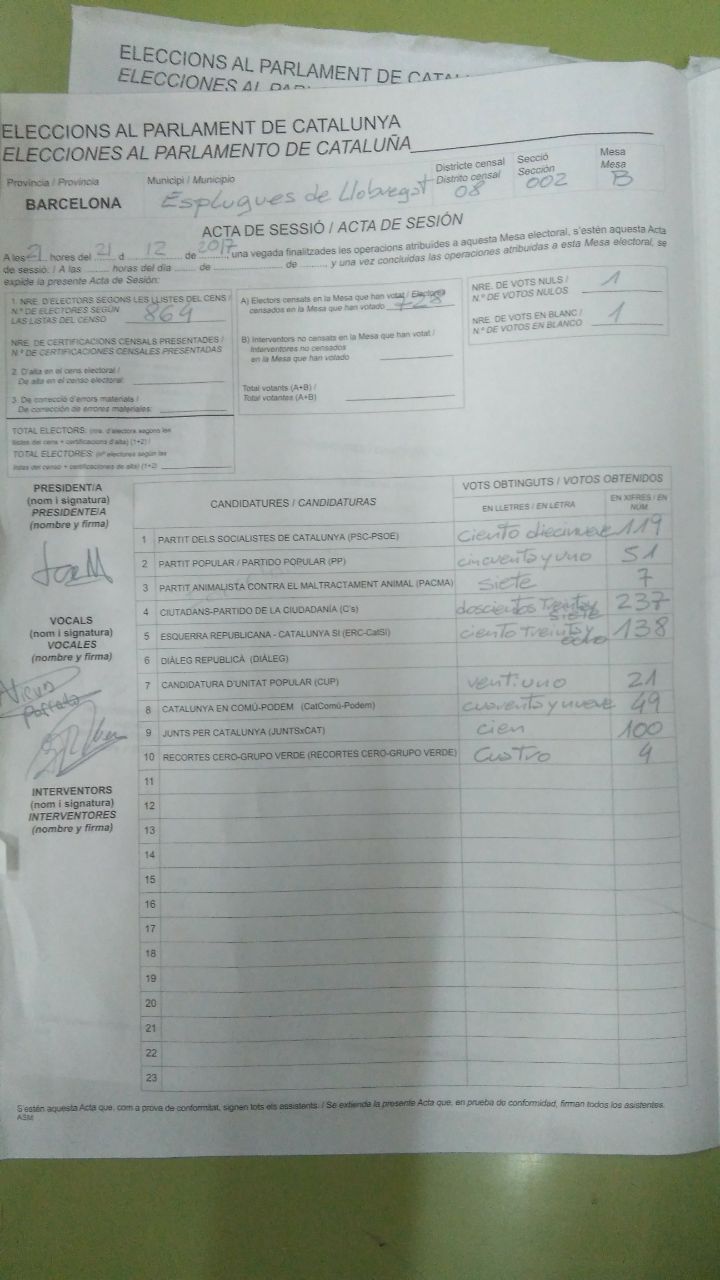 ELECCIONS AL PARLAMENT DE CATA
ELECCIONES AL PAR
ELECCIONS AL PARLAMENT DE CATALUNYA
ELECCIONES AL PARLAMENTO DE CATALUÑA
Província / Provincia Municipi / Municipio Districte censal Secció Mesa
Distrito censal Sección Mesa
BARCELONA Esplugues de Llobregat 08 002 B
ACTA DE SESSIÓ / ACTA DE SESIÓN
A les 21 hores del 21 d 12 de 2017, una vegada finalitzades les operacions atribuïdes a aquesta Mesa electoral, s'estén aquesta Acta
de sessió. / A las ........ horas del día ........ de ........ de ........ y una vez concluidas las operaciones atribuidas a esta Mesa electoral, se
expide la presente Acta de Sesión:
1. NRE. D'ELECTORS SEGONS LES LLISTES DEL CENS /
N.º DE ELECTORES SEGÚN
LAS LISTAS DEL CENSO 864
NRE. DE CERTIFICACIONS CENSALS PRESENTADES /
N.º DE CERTIFICACIONES CENSALES PRESENTADAS
2. D'alta en el cens electoral /
De alta en el censo electoral:
3. De correcció d'errors materials /
De corrección de errores materiales:
TOTAL ELECTORS: (nre. d'electors segons les
llistes del cens + certificacions d'alta) (1+2) /
TOTAL ELECTORES: (nº electores según las
listas del censo + certificaciones de alta) (1+2)
A) Electors censats en la Mesa que han votat / Electores
censados en la Mesa que han votado 728
B) Interventors no censats en la Mesa que han votat /
Interventores no censados
en la Mesa que han votado
Total votants (A+B) /
Total votantes (A+B)
NRE. DE VOTS NULS /
N.º DE VOTOS NULOS 1
NRE. DE VOTS EN BLANC /
N.º DE VOTOS EN BLANCO 1
PRESIDENT/A
(nom i signatura)
PRESIDENTE/A
(nombre y firma)
VOCALS
(nom i signatura)
VOCALES
(nombre y firma)
INTERVENTORS
(nom i signatura)
INTERVENTORES
(nombre y firma)
CANDIDATURES / CANDIDATURAS
VOTS OBTINGUTS / VOTOS OBTENIDOS
EN LLETRES / EN LETRA EN XIFRES / EN NÚM.
1 PARTIT DELS SOCIALISTES DE CATALUNYA (PSC-PSOE) ciento diecinueve 119
2 PARTIT POPULAR / PARTIDO POPULAR (PP) cincuenta y uno 51
3 PARTIT ANIMALISTA CONTRA EL MALTRACTAMENT ANIMAL (PACMA) siete 7
4 CIUTADANS-PARTIDO DE LA CIUDADANÍA (C's) doscientos treinta y siete 237
5 ESQUERRA REPUBLICANA - CATALUNYA SÍ (ERC-CatSí) ciento treinta y ocho 138
6 DIÀLEG REPUBLICÀ (DIÀLEG)
7 CANDIDATURA D'UNITAT POPULAR (CUP) ventiuno 21
8 CATALUNYA EN COMÚ-PODEM (CatComú-Podem) cuarenta y nueve 49
9 JUNTS PER CATALUNYA (JUNTSxCAT) cien 100
10 RECORTES CERO-GRUPO VERDE (RECORTES CERO-GRUPO VERDE) Cuatro 4
11
12
13
14
15
16
17
18
19
20
21
22
23
S'estén aquesta Acta que, com a prova de conformitat, signen tots els assistents. / Se extiende la presente Acta que, en prueba de conformidad, firman todos los asistentes.
ASM